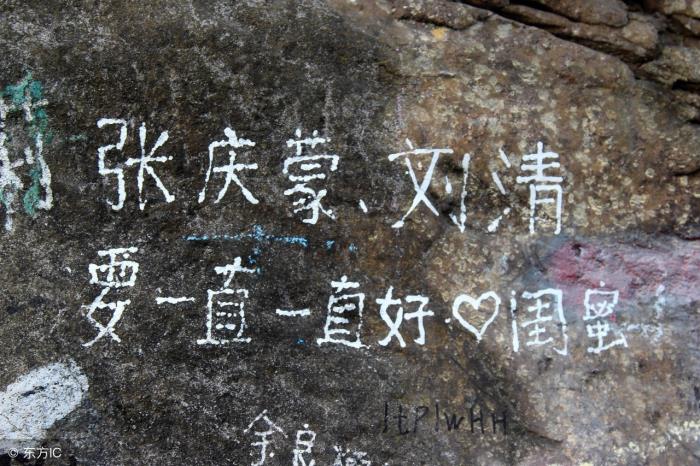 张庆蒙、刘清
要一直一直好♡闺蜜
ItP!WHH
余良
© 东方IC